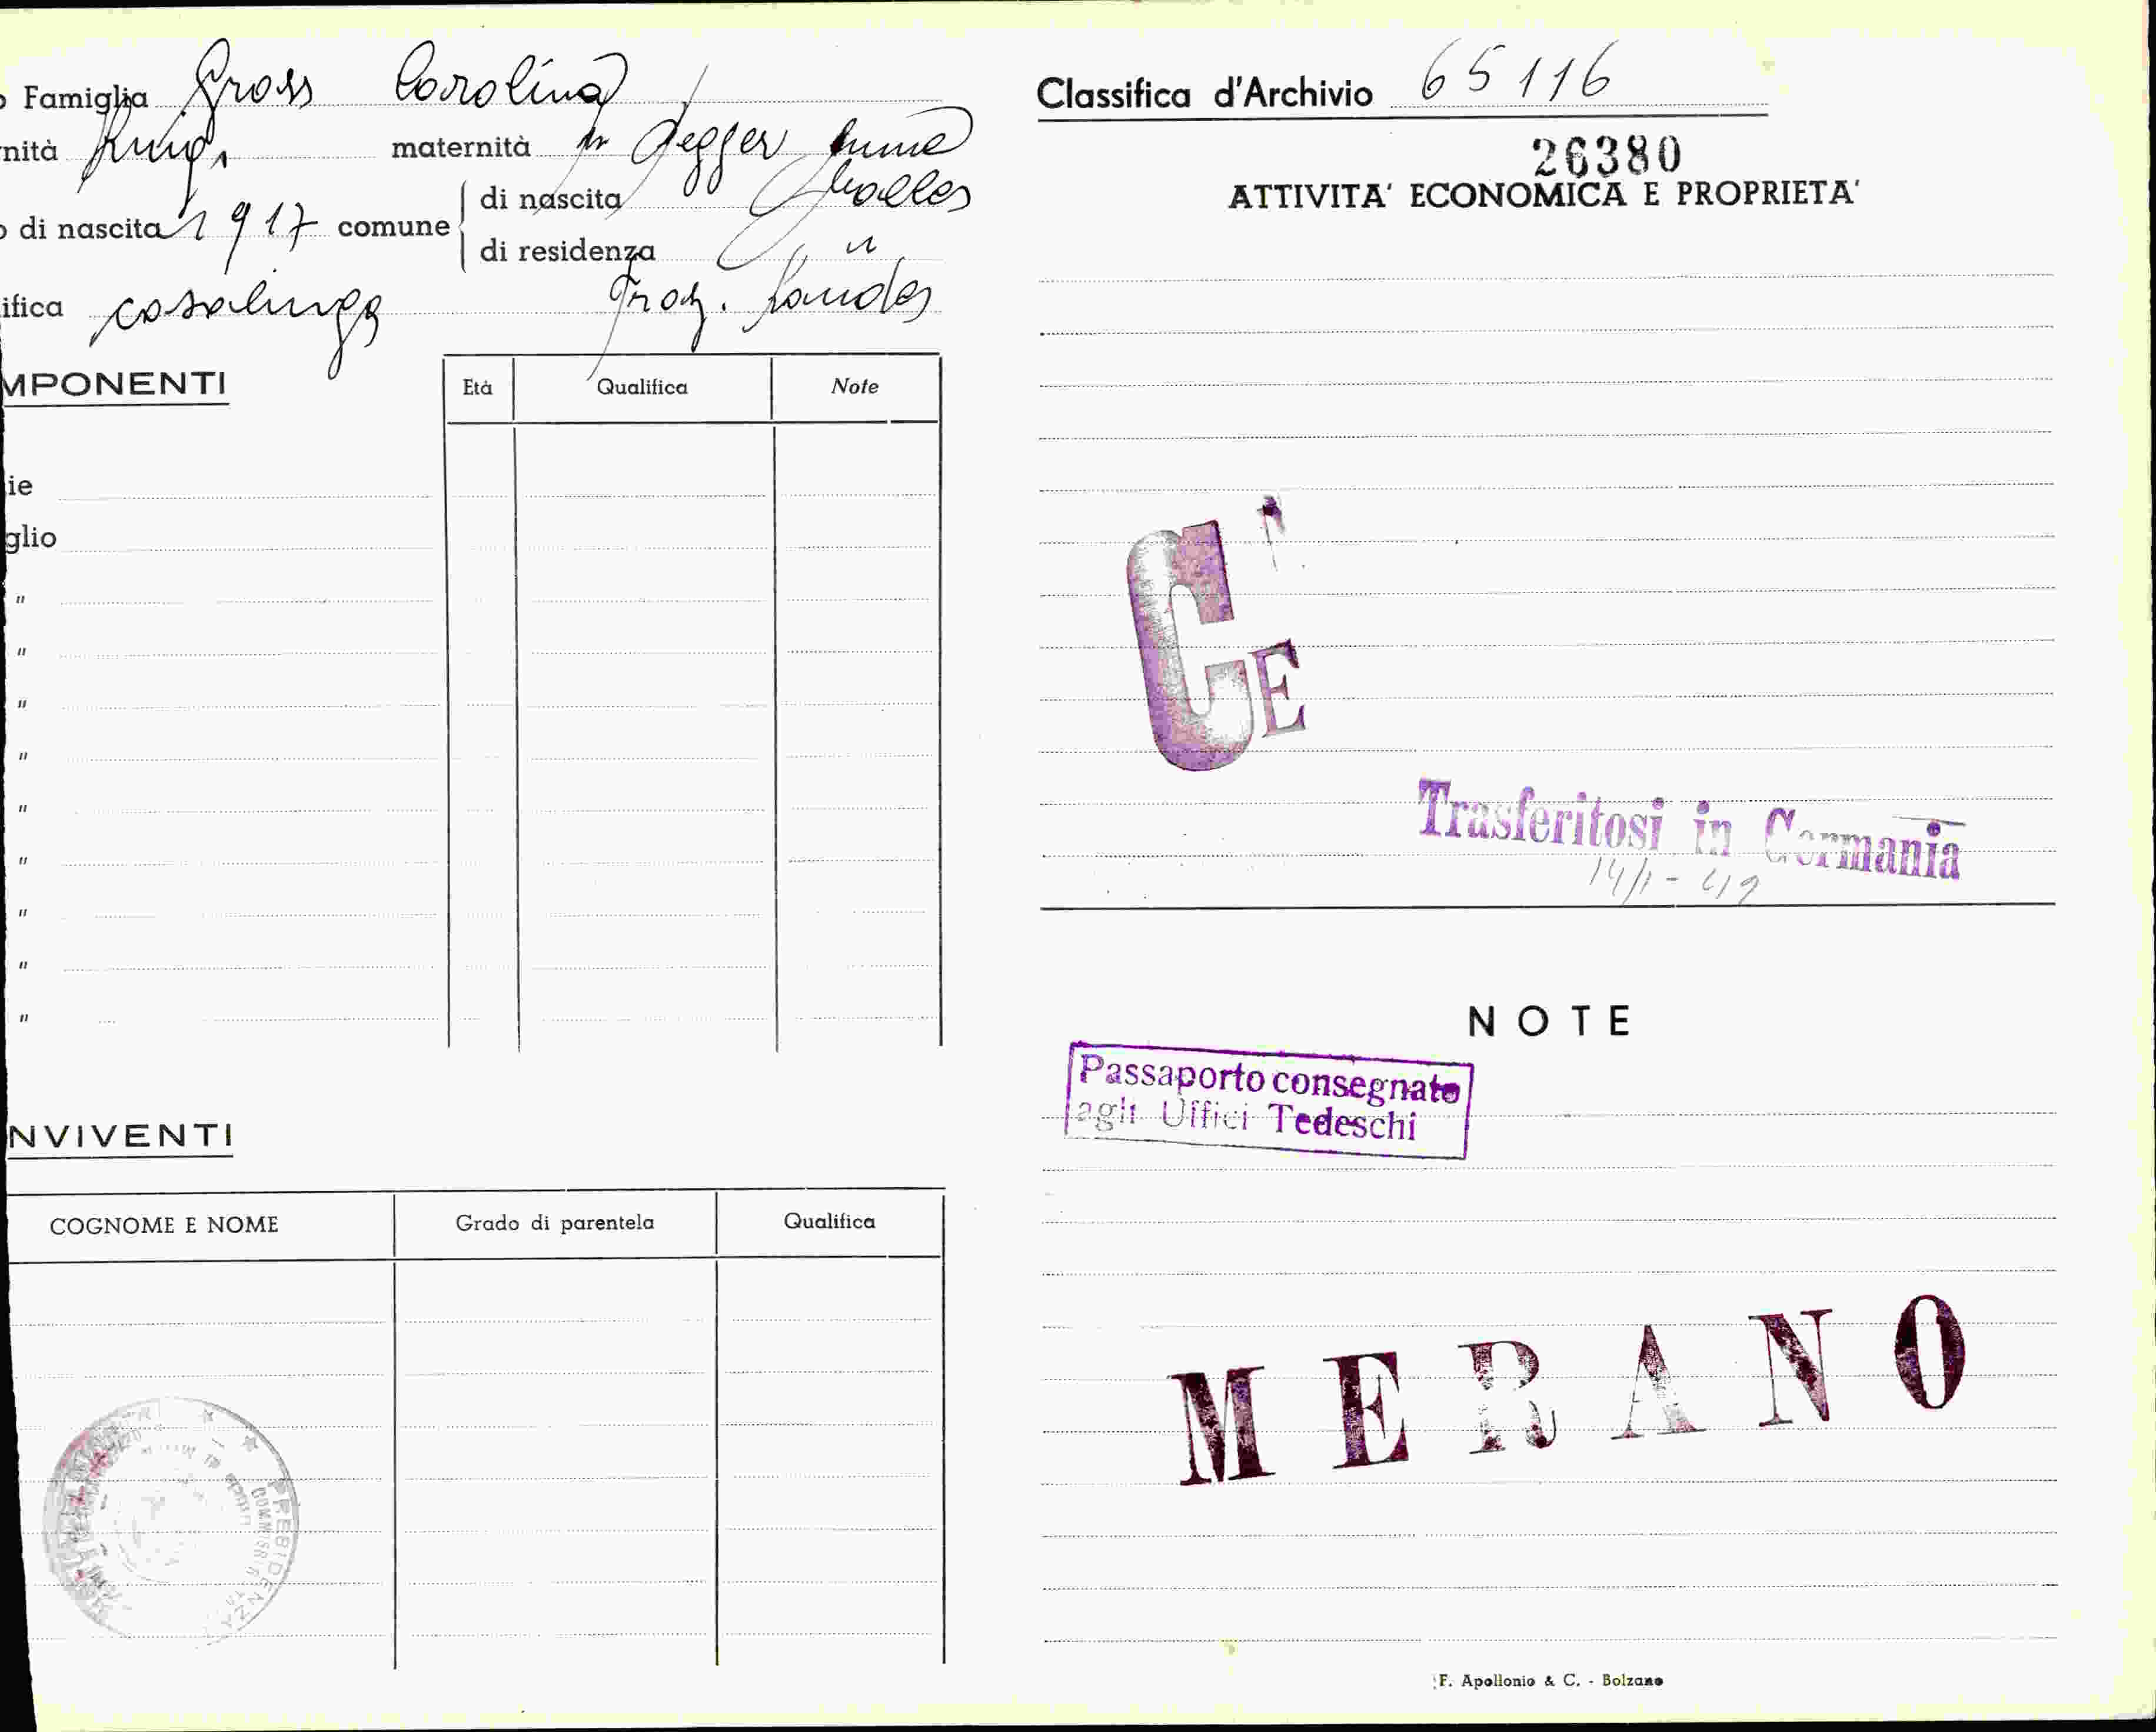 o Famiglia Gross Carolina
nità Luigi maternità Anna
o di nascita 1917 comune di nascita
di residenza "
ifica casalinga Fraz.
MPONENTI
Età Qualifica Note
ie
glio
"
"
"
"
"
"
"
"
"
NVIVENTI
COGNOME E NOME Grado di parentela Qualifica
PRESIDENZA
Classifica d'Archivio 65116
26380
ATTIVITA' ECONOMICA E PROPRIETA'
CE
Trasferitosi in Germania
NOTE
Passaporto consegnato
agli Uffici Tedeschi
MERANO
F. Apollonio & C. - Bolzano